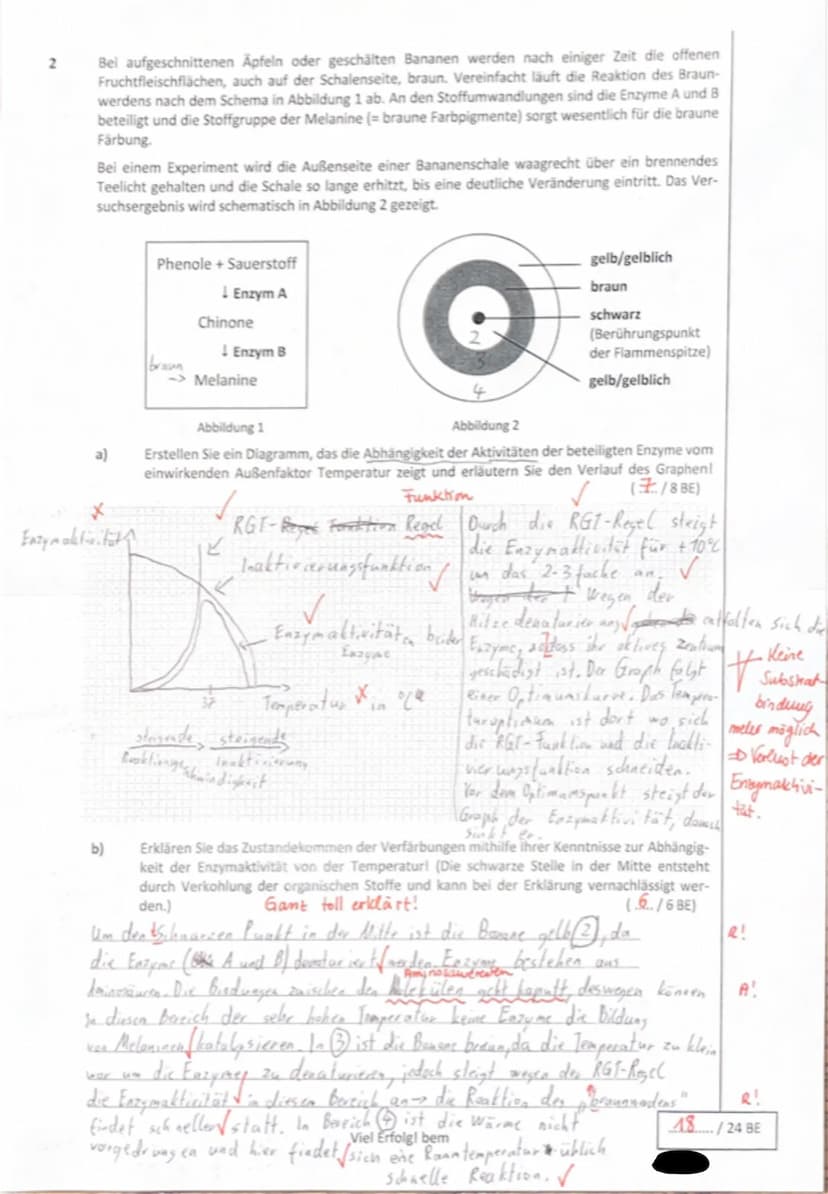 2 Bei aufgeschnittenen Äpfeln oder geschälten Bananen werden nach einiger Zeit die offenen
Fruchtfleischflächen, auch auf der Schalenseite, braun. Vereinfacht läuft die Reaktion des Braun-
werdens nach dem Schema in Abbildung 1 ab. An den Stoffumwandlungen sind die Enzyme A und B
beteiligt und die Stoffgruppe der Melanine (= braune Farbpigmente) sorgt wesentlich für die braune
Färbung.
Bei einem Experiment wird die Außenseite einer Bananenschale waagrecht über ein brennendes
Teelicht gehalten und die Schale so lange erhitzt, bis eine deutliche Veränderung eintritt. Das Ver-
suchsergebnis wird schematisch in Abbildung 2 gezeigt.
Phenole + Sauerstoff
↓ Enzym A
Chinone
↓ Enzym B
braun
-> Melanine
Abbildung 1
gelb/gelblich
braun
schwarz
(Berührungspunkt
der Flammenspitze)
gelb/gelblich
2
3
4
Abbildung 2
a) Erstellen Sie ein Diagramm, das die Abhängigkeit der Aktivitäten der beteiligten Enzyme vom
einwirkenden Außenfaktor Temperatur zeigt und erläutern Sie den Verlauf des Graphen!
(7../8 BE)
Funktion
Enzymaktivität
RGT-Regel Funktion Regel
Inaktivierungsfunktion
Enzymaktivität beider
Enzyme
37
Temperatur in °C
steigende steigende
Reaktionsge- Inaktivierung
schwindigkeit
Durch die RGT-Regel steigt
die Enzymaktivität für +10°C
um das 2-3 fache an.
Wegen der
Hitze denaturierung entfalten sich die
Enzyme, sodass ihr aktives Zentrum
geschädigt ist. Der Graph folgt
einer Optimumskurve. Das Tempera-
turoptimum ist dort wo sich
die RGT-Funktion und die Inakti-
vierungsfunktion schneiden.
Vor dem Optimumspunkt steigt der
Graph der Enzymaktivität, danach
sinkt er.
Keine
Substrat-
bindung
mehr möglich
=> Verlust der
Enzymaktivi-
tät.
b) Erklären Sie das Zustandekommen der Verfärbungen mithilfe Ihrer Kenntnisse zur Abhängig-
keit der Enzymaktivität von der Temperatur! (Die schwarze Stelle in der Mitte entsteht
durch Verkohlung der organischen Stoffe und kann bei der Erklärung vernachlässigt wer-
den.) Ganz toll erklärt! (.6../6 BE)
Um den schwarzen Punkt in der Mitte ist die Banane gelb (2), da R!
die Enzyme (A und B) denaturiert werden. Enzyme bestehen aus
Aminosäureketten
Aminosäuren. Die Bindungen zwischen den Molekülen geht kaputt, deswegen können A!
In diesen Bereich der sehr hohen Temperatur keine Enzyme die Bildung
von Melaninen katalysieren. In (3) ist die Banane braun, da die Temperatur zu klein
war um die Enzyme zu denaturieren, jedoch steigt wegen der RGT-Regel
die Enzymaktivität in diesen Bereich an -> die Reaktion des "braunwerdens" R!
findet schneller statt. In Bereich (4) ist die Wärme nicht
Viel Erfolg! bem
18..... / 24 BE
vorgedrungen und hier findet sich eine Raumtemperatur üblich
schnelle Reaktion.